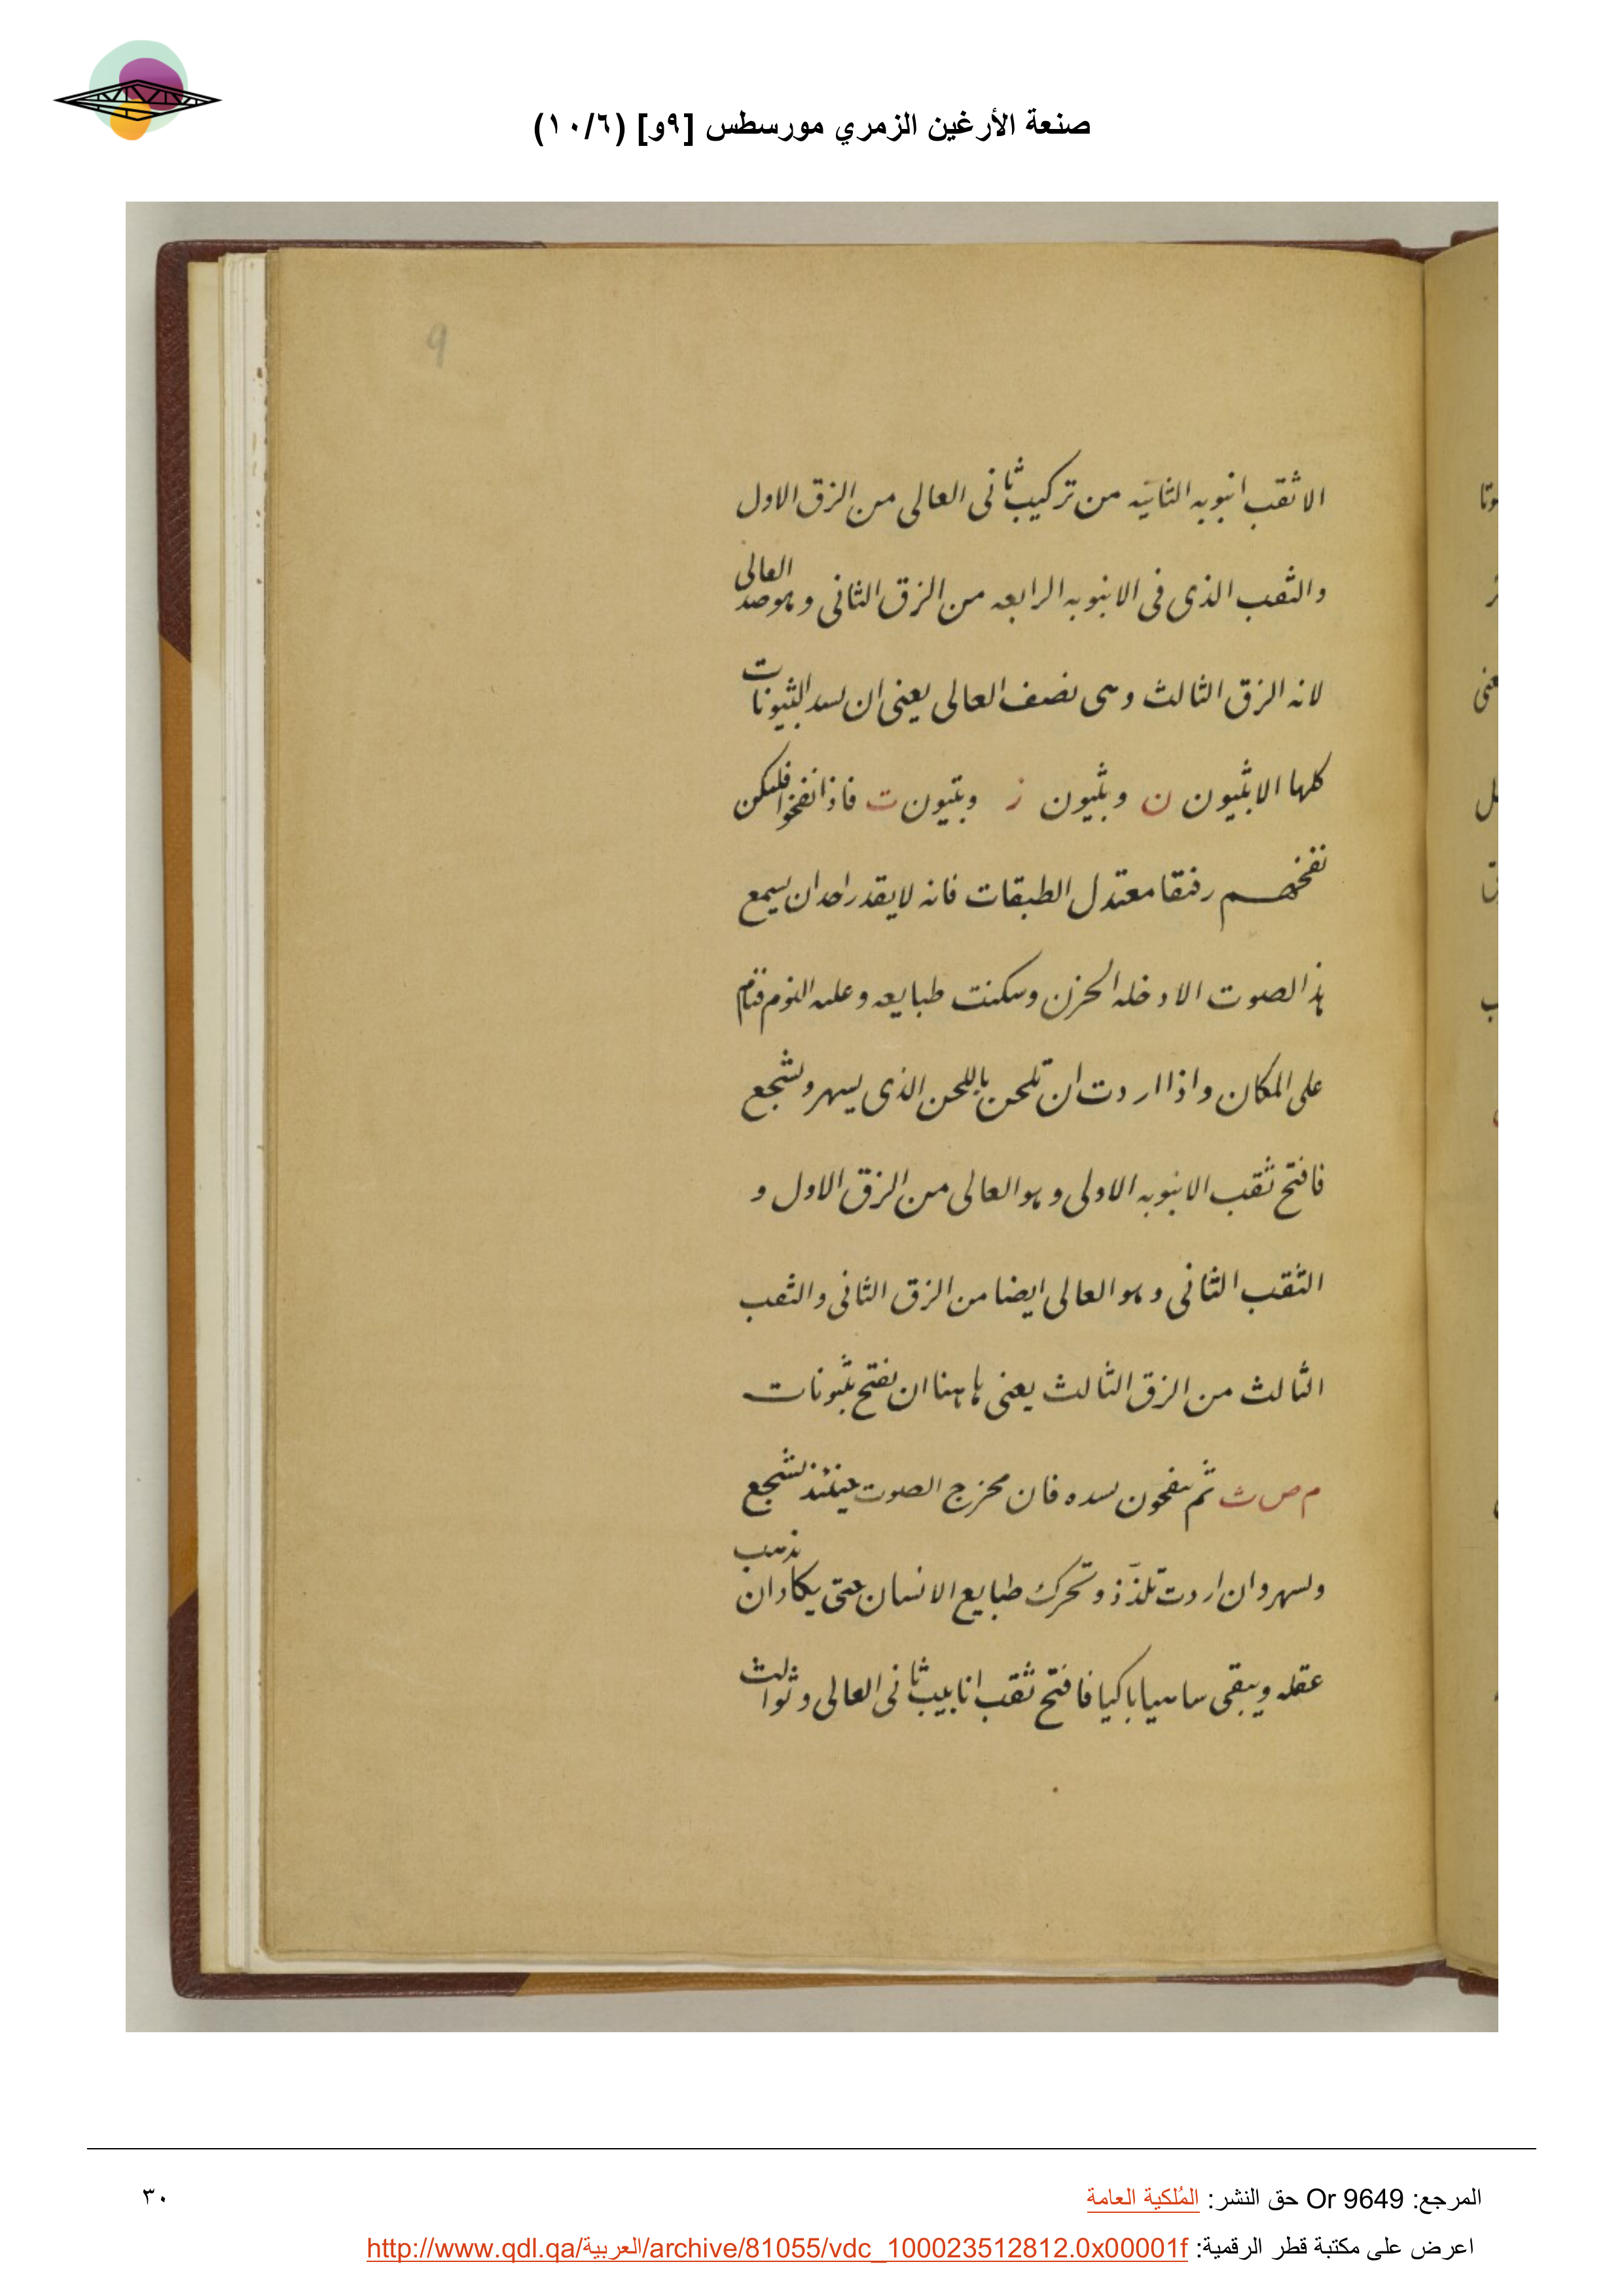 صنعة الأرغين الزمري مورسطس [٩و] (١٠/٦)
9
الا ثقب انبوبه الثانيه من تركيب ثانى العالى من الزق الاول
والثقب الذى فى الانبوبه الرابعه من الزق الثانى وهو صد العالى
لانه الزق الثالث وهى نصف العالى يعنى ان يسد الثيونات
كلها الا بثيون ن وبثيون ز وبثيون ت فاذا نفخوا فليكن
نفخهم رفقا معتدل الطبقات فانه لا يقدر احد ان يسمع
هذا الصوت الا دخله الحزن وسكنت طبايعه وعلىه النوم فنام
على المكان واذا اردت ان تلحن باللحن الذى يسهر ويشجع
فافتح ثقب الانبوبه الاولى وهو العالى من الزق الاول و
الثقب الثانى وهو العالى ايضا من الزق الثانى والثقب
الثالث من الزق الثالث يعنى هاهنا ان نفتح بثيونات
م ص ث ثم ينفخون بشده فان مخرج الصوت حينئذ يشجع
ويسهر وان اردت تلذذ وتحرك طبايع الانسان حتى يكاد ان يذهب
عقله ويبقى ساهيا باكيا فافتح ثقب انابيب ثانى العالى وثوالث
المرجع: Or 9649 حق النشر: المُلكية العامة
٣٠
اعرض على مكتبة قطر الرقمية: http://www.qdl.qa/العربية/archive/81055/vdc_100023512812.0x00001f